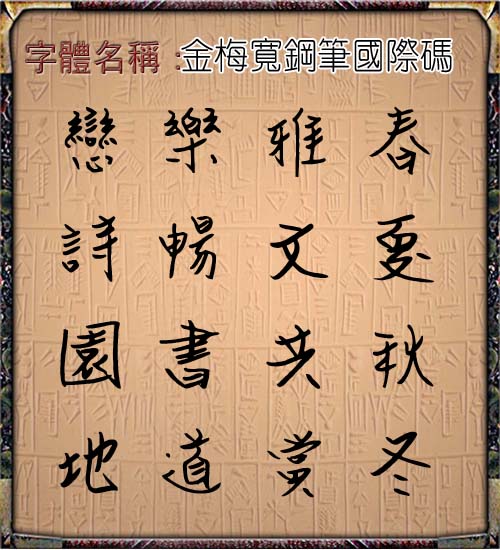 字體名稱 :金梅寬鋼筆國際碼
春夏秋冬
雅文共賞
樂暢書道
戀詩園地